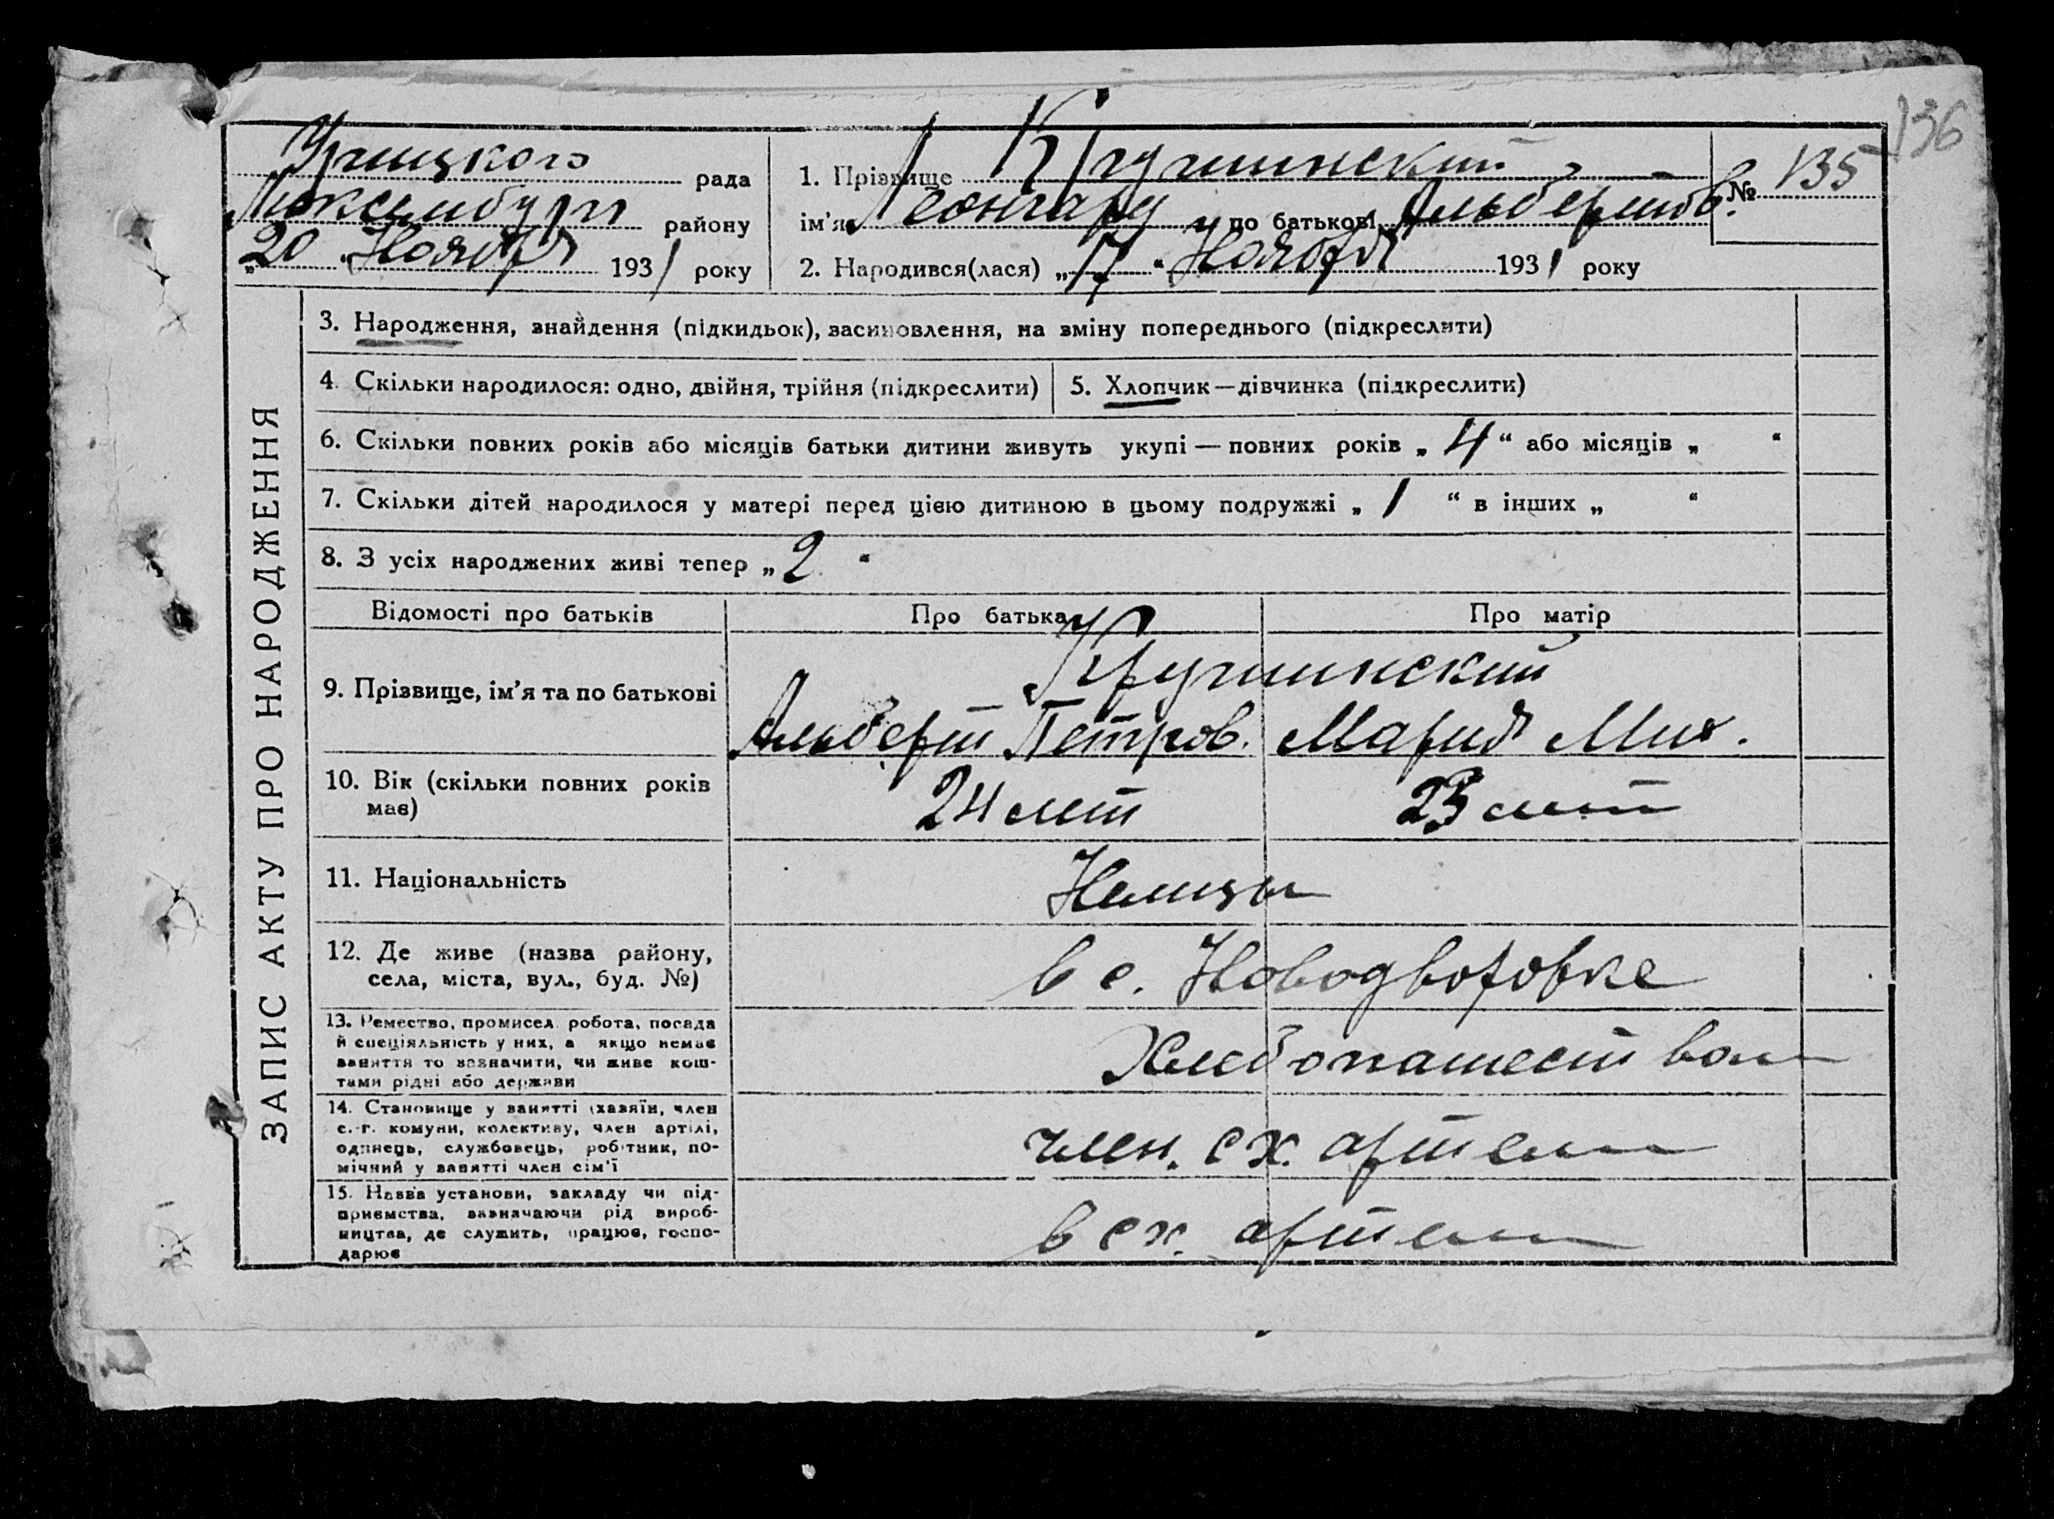 136
Урицкого рада
Люксембург району
„20“ Ноября 1931 року
1. Прізвище Кручинский
ім'я Леонгард по батькові Альбертов.
№ 135
2. Народився(лася) „17“ Ноября 1931 року
ЗАПИС АКТУ ПРО НАРОДЖЕННЯ
3. Народження, знайдення (підкидьок), васиновлення, на зміну попереднього (підкреслити)
4. Скільки народилося: одно, двійня, трійня (підкреслити)
5. Хлопчик—дівчинка (підкреслити)
6. Скільки повних років або місяців батьки дитини живуть укупі — повних років „4“ або місяців „ “
7. Скільки дітей народилося у матері перед цією дитиною в цьому подружжі „1“ в інших „ “
8. З усіх народжених живі тепер „2“
Відомості про батьків Про батька Про матір
9. Прізвище, ім'я та по батькові
Кручинский
Альберт Петров. Мария Мих.
10. Вік (скільки повних років
має)
24 лет 23 лет
11. Національність
Немцы
12. Де живе (назва району,
села, міста, вул., буд. №)
в с. Новодворовке
13. Ремество, промисел, робота, посада
й спеціяльність у них, а якщо немає
заняття то зазначити, чи живе кош-
тами рідні або держави
Хлебопашеством
14. Становище у занятті (хазяїн, член
с.-г. комуни, колективу, член артілі,
одинець, службовець, робітник, по-
мічний у занятті член сім'ї
член. с х. артели
15. Назва установи, закладу чи під-
приємства, зазначаючи рід вироб-
ництва, де служить, працює, госпо-
дарює
в с х. артели